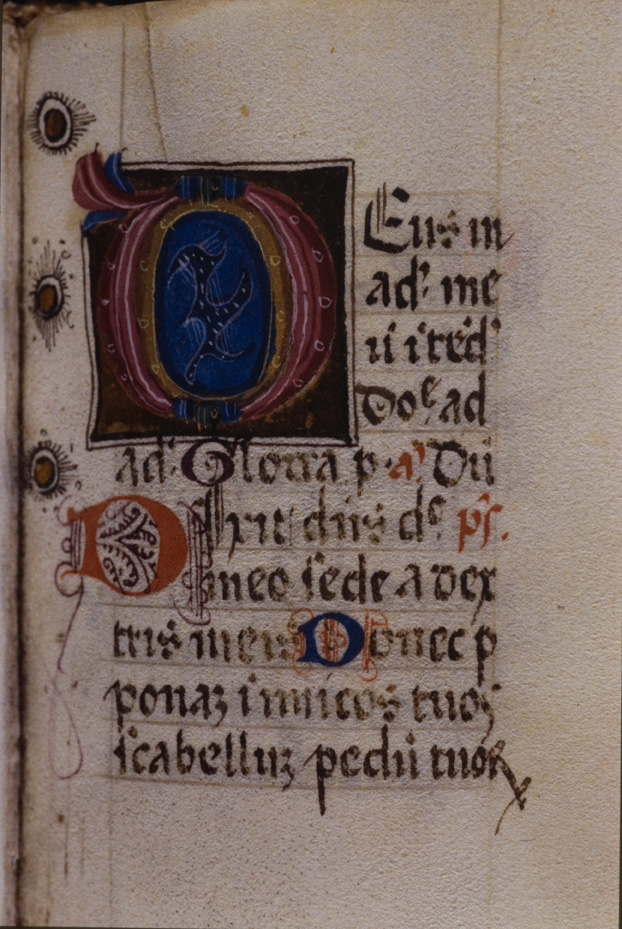 DEus in
ad' me
ū ītēd'
Doᵉ ad
ad' Gloria p. a' Dū
Dixit dn̄s dᵒ pś.
meo sede a dex
tris meis Donec p
ponaʒ īmicos tuos
scabelluʒ pedū tuoꝝ